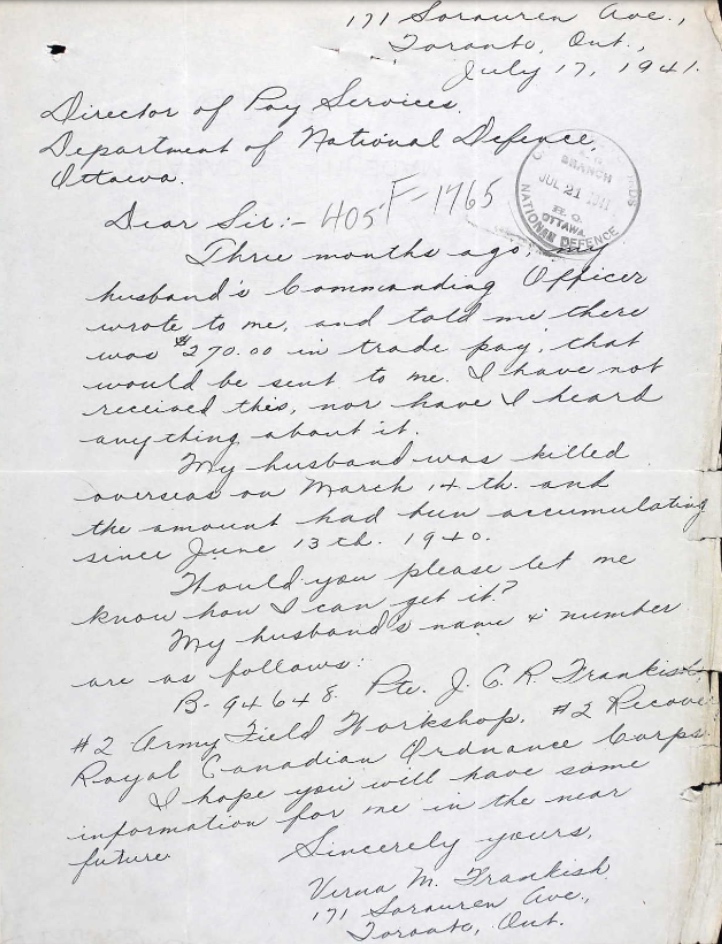 171 Sorauren Ave.,
Toronto, Ont.,
July 17, 1941.
Director of Pay Services.
Department of National Defence,
Ottawa.
BRANCH
JUL 21 1941
H. Q.
OTTAWA
NATIONAL DEFENCE
Dear Sir:- 405 F-1765
Three months ago, my
husband's Commanding Officer
wrote to me, and told me there
was $270.00 in trade pay, that
would be sent to me. I have not
received this, nor have I heard
anything about it.
My husband was killed
overseas on March 14th. and
the amount had been accumulating
since June 13th. 1940.
Would you please let me
know how I can get it?
My husband's name & number
are as follows:
B-94648. Pte. J. C. R. Frankish,
#2 Army Field Workshop. #2 Recove
Royal Canadian Ordnance Corps.
I hope you will have some
information for me in the near
future.
Sincerely yours,
Verna M. Frankish
171 Sorauren Ave.,
Toronto, Ont.